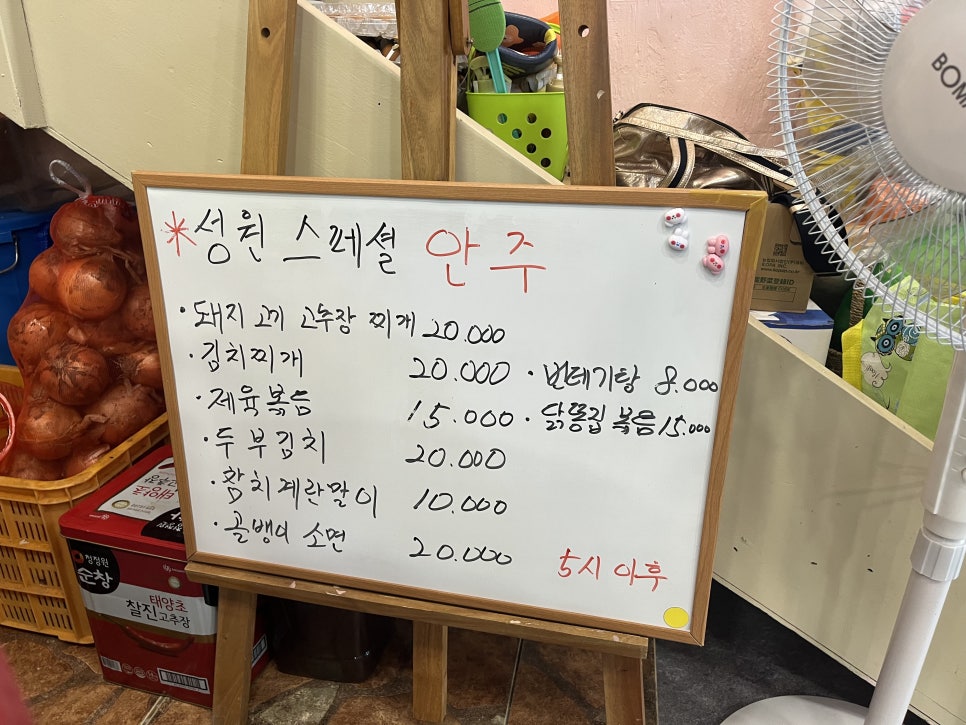 *성원 스레셜 안주
· 돼지고기 고추장 찌개 20.000
· 김치찌개 20.000
· 제육볶음 15.000
· 두부김치 20.000
· 참치계란말이 10.000
· 골뱅이 소면 20.000
· 번데기탕 8.000
· 닭똥집 볶음 15.000
5시 이후
청정원
순창
태양초
찰진고추장
BOMA